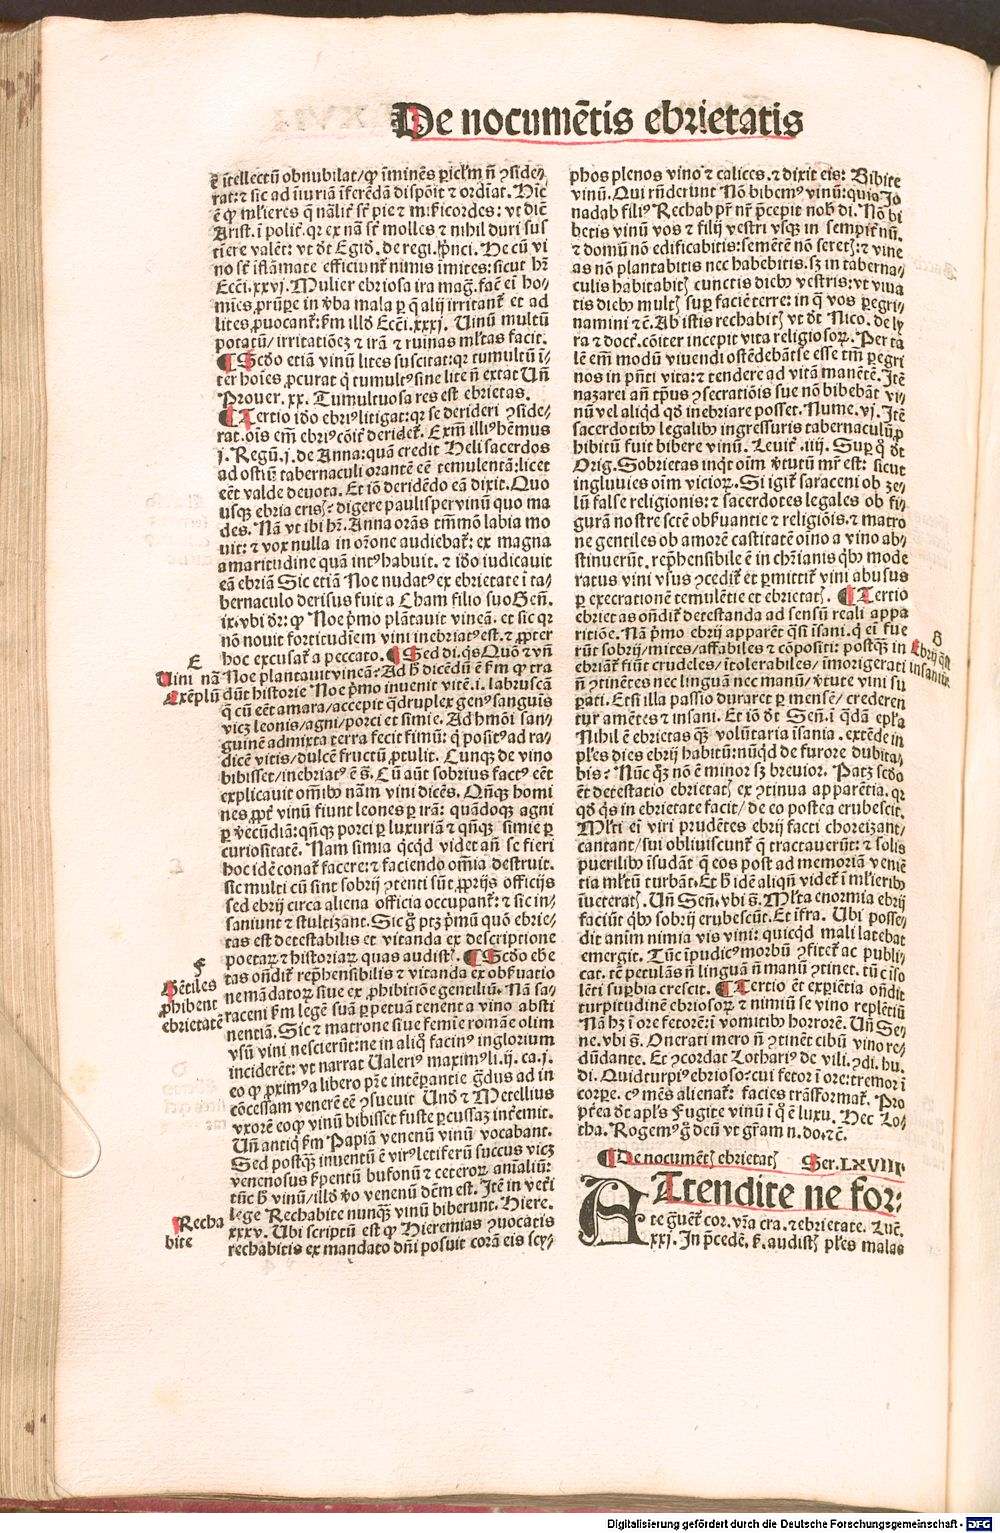 De nocumẽtis ebrietatis
ẽ ĩtellectũ obnubilat/ꝙ ĩminẽs ꝑicl̓m ñ ꝯside/
rat: ⁊ sic ad iĩuriã ĩferẽdã dispõit ⁊ ordĩat. Hĩc
ẽ ꝙ ml̓ieres q̃ nãlit̃ sẽ pie ⁊ m̃iẽricordes: vt diẽ
Arist. ĩ polit̃. qꝛ ex nã sẽ molles ⁊ nihil duri sus
tiere valẽt: vt ðt Egiõ. de regi. p̃nci. He cũ vi
no sẽ ĩflãmate efficiunt̃ nimis ĩmites: sicut hr̃
Ecĉi. xxvj. Mulier ebriosa ira mag̃. faẽ eĩ ho-
mĩes ꝓrũꝑe in v̓ba mala ꝑ q̃ alij irritant̃ et ad
lites ꝓuocant̃: ẜm illð Ecĉi. xxxj. Uinũ multũ
potatũ/ irritatiõeȝ ⁊ irã ⁊ ruinas ml̓tas facit.
¶ Scðo etiã vinũ lites suscitat: qꝛ tumultũ ĩ-
ter hoĩes ꝓcurat q̃ tumultꝰ sine lite ñ extat Uñ
Prouer. xx. Tumultuosa res est ebrietas.
¶ Tertio iðo ebriꝰ litigat: qꝛ se derideri ꝯside-
rat. oĩs em̃ ebriꝰ cõit̃ deridet̃. Exm̃ illiꝰ hẽmus
j. Regũ. j. de Anna: quã credit Heli sacerdos
ad ostiũ tabernaculi orantẽ eẽ temulentã: licet
eẽt valde deuota. Et iõ deridẽdo eã dixit. Quo
usqꝫ ebria eris? digere paulisper vinũ quo ma
des. Nã vt ibi hr̃. Anna orãs tm̃mõ labia mo
uit: ⁊ vox nulla in orõne audiebat̃: ex magna
amaritudine quã intꝰ habuit. ⁊ iðo iudicauit
eã ebriã Sic etiã Noe nudatꝰ ex ebrietate ĩ ta-
bernaculo derisus fuit a Cham filio suo Geñ.
ix. vbi ðr: ꝙ Noe p̃mo plãtauit vineã. et sic qꝛ
nõ nouit fortitudĩem vini inebriatꝰ est. ⁊ ꝓpter
hoc excusat̃ a peccato. ¶ Sed di. q̃s Quõ ⁊ vñ
Noe plantauit vineã? Ad h̃ dicẽdũ ẽ ẜm ꝙ tra
dũt historie Noe p̃mo inuenit vitẽ. i. labruscã
q̃ cũ eẽt amara/ accepit q̃druplex genꝰ sanguis
vicȝ leonis/ agni/ porci et simie. Ad hmõi san-
guinẽ admixta terra fecit fimũ: q̃ positꝰ ad ra-
dicẽ vitis/ dulcẽ fructũ ꝓtulit. Cunqꝫ de vino
bibisset/ inebriatꝰ ẽ s̃. Cũ aũt sobrius factꝰ eẽt
explicauit om̃ibꝰ nãm vini dicẽs. Qñqꝫ homi
nes ꝓpt̃ vinũ fiunt leones ꝑ irã: quãdoqꝫ agni
ꝑ v̓ecũdiã: qñqꝫ porci ꝑ luxuriã ⁊ qñqꝫ simie ꝑ
curiositatẽ. Nam simia q̃cq̃d videt añ se fieri
hoc idẽ conat̃ facere: ⁊ faciendo om̃ia destruit.
sic multi cũ sint sobrij ꝯtenti sũt ꝓprijs officijs
sed ebrij circa aliena officia occupant̃: ⁊ sic in-
saniunt ⁊ stultizant. Sic g̃ ptȝ p̃mũ quõ ebrie-
tas est detestabilis et vitanda ex descriptione
poetaꝝ ⁊ historiaꝝ quas audistꝭ. ¶ Scðo ebe
tas oñdit̃ rep̃hensibilis ⁊ vitanda ex obẜuatio
ne mãdatoꝝ siue ex ꝓhibitiõe gentiliũ. Nã sa-
raceni ẜm legẽ suã ꝑpetuã tenent̃ a vino absti
nentiã. Sic ⁊ matrone siue femĩe romãe olim
vsũ vini nescierũt: ne in aliq̃ facinꝰ inglorium
inciderẽt: vt narrat Ualeriꝰ maximꝰ li. ij. ca. j.
eo ꝙ ꝓximꝰ a libero p̃re intẽꝑantie g̃dus ad in
cõcessam venerẽ eẽ ꝯsueuit Unð ⁊ Metellius
vxorẽ eo ꝙ vinũ bibisset fuste ꝑcussaȝ int̓emit.
Uñ antiq̃ ẜm Papiã venenũ vinũ vocabant.
Sed postqꝫ inuentũ ẽ virꝰ letiferũ succus vicȝ
venenosus ẜpentũ bufonũ ⁊ ceteroꝝ anĩaliũ:
tũc h̃ vinũ/ illð v̓o venenũ dc̃m est. Itẽ in vet̓i
lege Rechabite nunqꝫ vinũ biberunt. Hiere.
xxxv. Ubi scriptũ est ꝙ Hieremias ꝯuocatis
rechabitis ex mandato dñi posuit corã eis scy-
E
Uini nã
Exẽplũ
F
Gẽtiles
ꝓhibent
ebrietatẽ
Recha
bite
phos plenos vino ⁊ calices. ⁊ dixit eis: Bibite
vinũ. Qui rñderunt Nõ bibemꝰ vinũ: quia Jo
nadab filiꝰ Rechab pr̃ nr̃ p̃cepit nob̃ di. Nõ bi
betis vinũ vos ⁊ filij vestri vsqꝫ in sempit̓nũ.
⁊ domũ nõ edificabitis: semẽtẽ nõ seretꝭ: ⁊ vine
as nõ plantabitis nec habebitis. sȝ in taberna/
culis habitabitꝭ cunctis diebꝰ vestris: vt viua
tis diebꝰ multꝭ suꝑ faciẽ terre: in q̃ vos ꝑegri-
namini ⁊ c̃. Ab istis rechabitꝭ vt ðt Nico. de ly
ra ⁊ doct̃. cõiter incepit vita religiosoꝝ. Per ta
lẽ em̃ modũ viuendi ostẽdebãt se esse tm̃ ꝑegri
nos in pñti vita: ⁊ tendere ad vitã manẽtẽ. Itẽ
nazarei añ tp̃us ꝯsecratiõis sue nõ bibebãt vi-
nũ vel aliq̃d qð inebriare posset. Nume. vj. Itẽ
sacerdotibꝰ legalibꝰ ingressuris tabernaculũ ꝓ
hibitũ fuit bibere vinũ. Leuit̃. iiij. Suꝑ q̃ ðt
Orig. Sobrietas inq̃t oĩm v̓tutũ mr̃ est: sicut
ingluuies oĩm vicioꝝ. Si igit̃ saraceni ob ze-
lũ false religionis: ⁊ sacerdotes legales ob fi-
gurã nostre sctẽ obẜuantie ⁊ religiõis. ⁊ matro
ne gentiles ob amorẽ castitatẽ oĩno a vino ab/
stinuerũt. rep̃hensibile ẽ in chr̃ianis qbꝰ mode
ratus vini vsus ꝯcedit̃ et ꝑmittit̃ vini abusus
ꝑ execrationẽ temulẽtie et ebrietatꝭ. ¶ Tertio
ebrietas oñdit̃ detestanda ad sensũ reali appa
ritiõe. Nã p̃mo ebrij apparẽt q̃si ĩsani. q̃ ei fue
rũt sobrij/ mites/ affabiles ⁊ cõpositi: postqꝫ in
ebriãt̃ fiũt crudeles/ ĩtolerabiles/ ĩmorigerati
ñ ꝯtinẽtes nec linguã nec manũ/ v̓tute vini su
ꝑati. Etsi illa passio duraret ꝑ mensẽ/ crederen
tur amẽtes ⁊ insani. Et iõ ðt Señ. ĩ q̃dã epl̓a
Nihil ẽ ebrietas qꝫ volũtaria ĩsania. extẽde in
pl̓es dies ebrij habitũ: nũq̃d de furore dubita-
bis? Nũc qꝫ nõ ẽ minor sȝ breuior. Patȝ scðo
eẽt detestatio ebrietatꝭ ex ꝯtinua apparẽtia. qꝛ
qð q̃s in ebrietate facit/ de eo postea erubescit.
Ml̓ti eĩ viri prudẽtes ebrij facti choreizant/
cantant/ sui obliuiscunt̃ q̃ tractauerũt: ⁊ solis
puerilibꝰ ĩsudãt q̃ eos post ad memoriã veniẽ
tia ml̓tũ turbãt. Et h̃ idẽ aliqñ videt̃ ĩ ml̓ieribꝰ
ĩueteratꝭ. Uñ Señ. vbi s̃. Ml̓ta enormia ebrij
faciũt qbꝰ sobrij erubescũt. Et ĩfra. Ubi posse-
dit anim̃ nimia vis vini: quicq̃d mali latebat
emergit. Tũc ĩpudicꝰ morbũ ꝯfitet̃ ac publi-
cat. tẽ petulãs ñ linguã ñ manũ ꝯtinet. tũc ĩso
lẽti suꝑbia crescit. ¶ Tertio eẽt exꝑiẽtia oñdit
turpitudinẽ ebriosoꝝ ⁊ nimiũ se vino replẽtiũ
Nã hȝ ĩ ore fetorẽ: ĩ vomitibꝰ horrorẽ. Uñ Se-
ne. vbi s̃. Onerati mero ñ ꝯtinẽt cibũ vino re-
dũdante. Et ꝯcordat Lothariꝰ de vili. ꝯdi. hu.
di. Quid turpiꝰ ebrioso? cui fetor ĩ ore: tremor ĩ
corꝑe. cꝰ mẽs alienat̃: facies trãsformat̃. Pro
pt̓ea ðt apl̓s Fugite vinũ ĩ q̃ ẽ luxu. Hec Lo-
tha. Rogemꝰ g̃ deũ vt gr̃am n. do. ⁊ c̃.
B
Ebrij q̃si
insaniũt
¶ De nocumẽtꝭ ebrietatꝭ Ser. LXVIII.
Attendite ne for:
te g̃uent̃ cor. vr̃a cra. ⁊ ebrietate. Luĉ.
xxj. In p̃cedẽ. ẜ. audistꝭ pl̓es malas
Digitalisierung gefördert durch die Deutsche Forschungsgemeinschaft - DFG